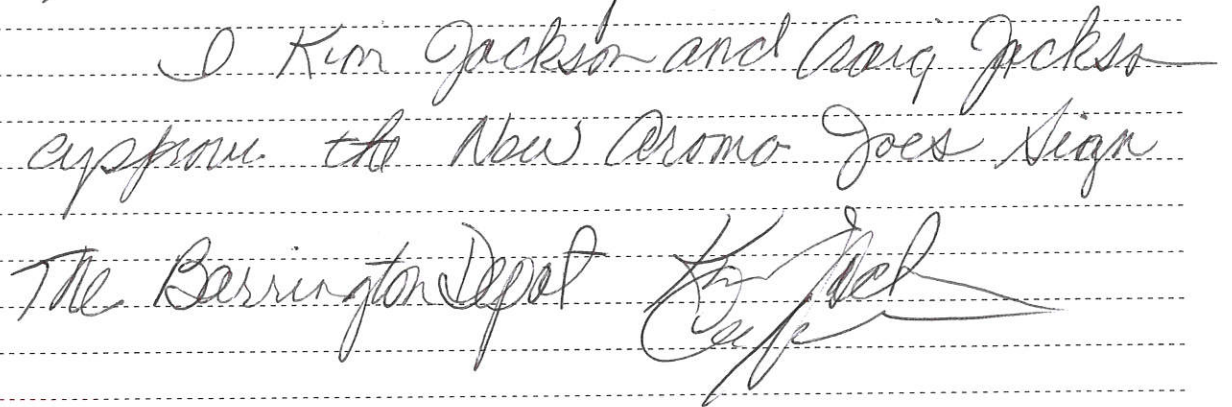 I Kim Jackson and Craig Jackson
approve the New Aroma Joes Sign
The Barrington Depot Kim Jack